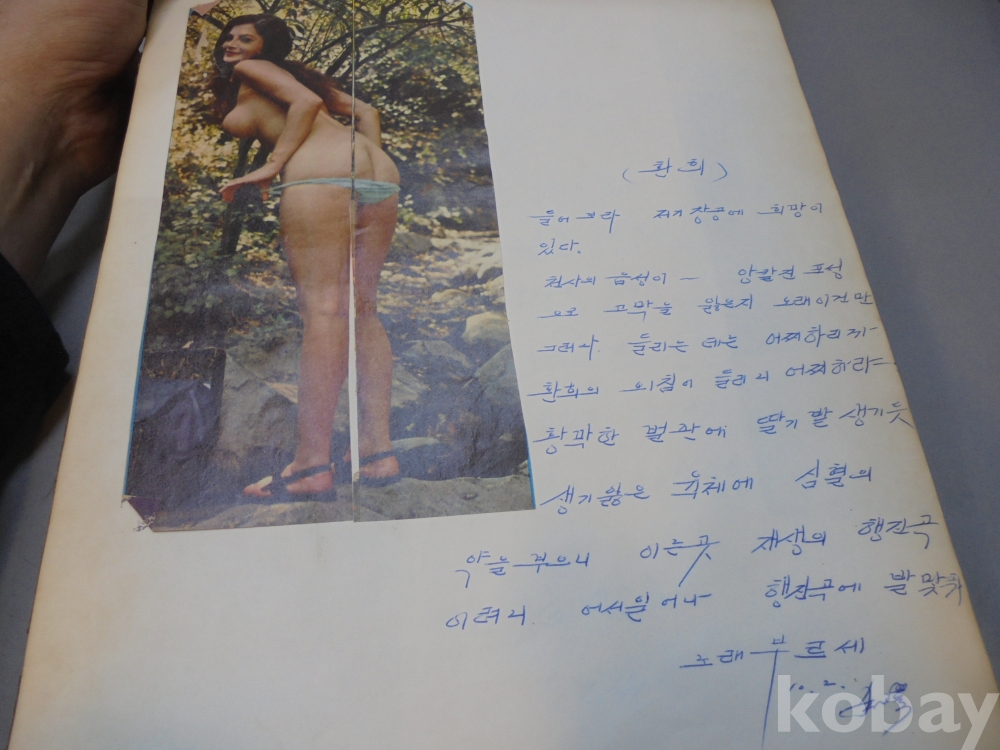 (환희)
들어보라 저기 창공에 희망이
있다.
천사의 음성이 - 앙칼진 포성
으로 고막을 잃은지 노래이건만
그러나 들리는 데는 어찌하리까-
환희의 외침이 들리니 어찌하랴-
황막한 벌판에 딸기밭 생기듯
생기잃은 육체에 심혈의
약을 부으니 이는곳 재생의 행진곡
이려니 어서일어나 행진곡에 발맞춰
노래부르세
10.2.
kobay